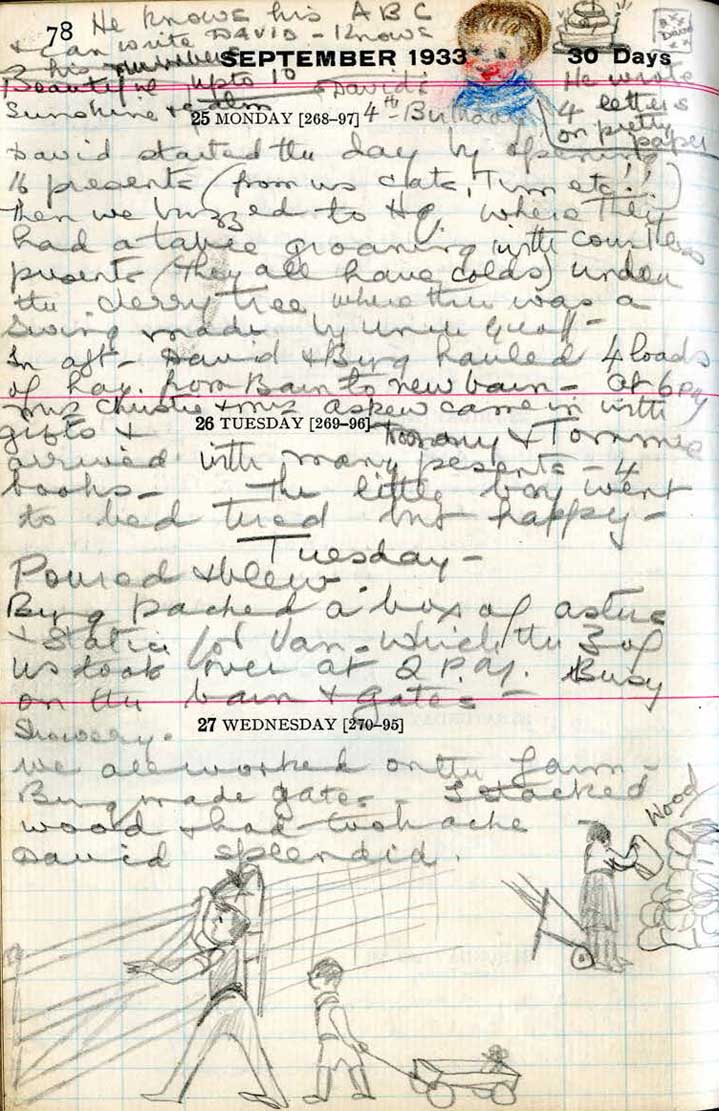 78 He knows his ABC
& can write DAVID - Knows
his numbers
SEPTEMBER 1933
30 Days
Beautiful upto 10
David's
He wrote
Sunshine & calm
25 MONDAY [268-97] 4th Birthday
4 letters
on pretty
paper
David started the day by opening
16 presents (from us cats, Tim etc!!)
Then we buzzed to HQ, where they
had a table groaning with countless
presents (they all have colds) under
the cherry tree where there was a
swing made by Uncle Geoff -
In aft - David & Byng hauled 4 loads
of hay. from Barn to new barn - at 6 pm
Mrs Christie & Mrs Askew came in with
gifts &
26 TUESDAY [269-96]
& Tommie
arrived with many pesents - 4
books - The little boy went
to bed tired but happy -
Tuesday -
Poured & blew
Byng packed a box of asters
& Statice for Van - which the 3 of
us took over at 2 P.M. Busy
on the barn & gates -
27 WEDNESDAY [270-95]
Showery.
We all worked on the farm -
Byng made gates - I stacked
wood & had toothache
David splendid.
Wood